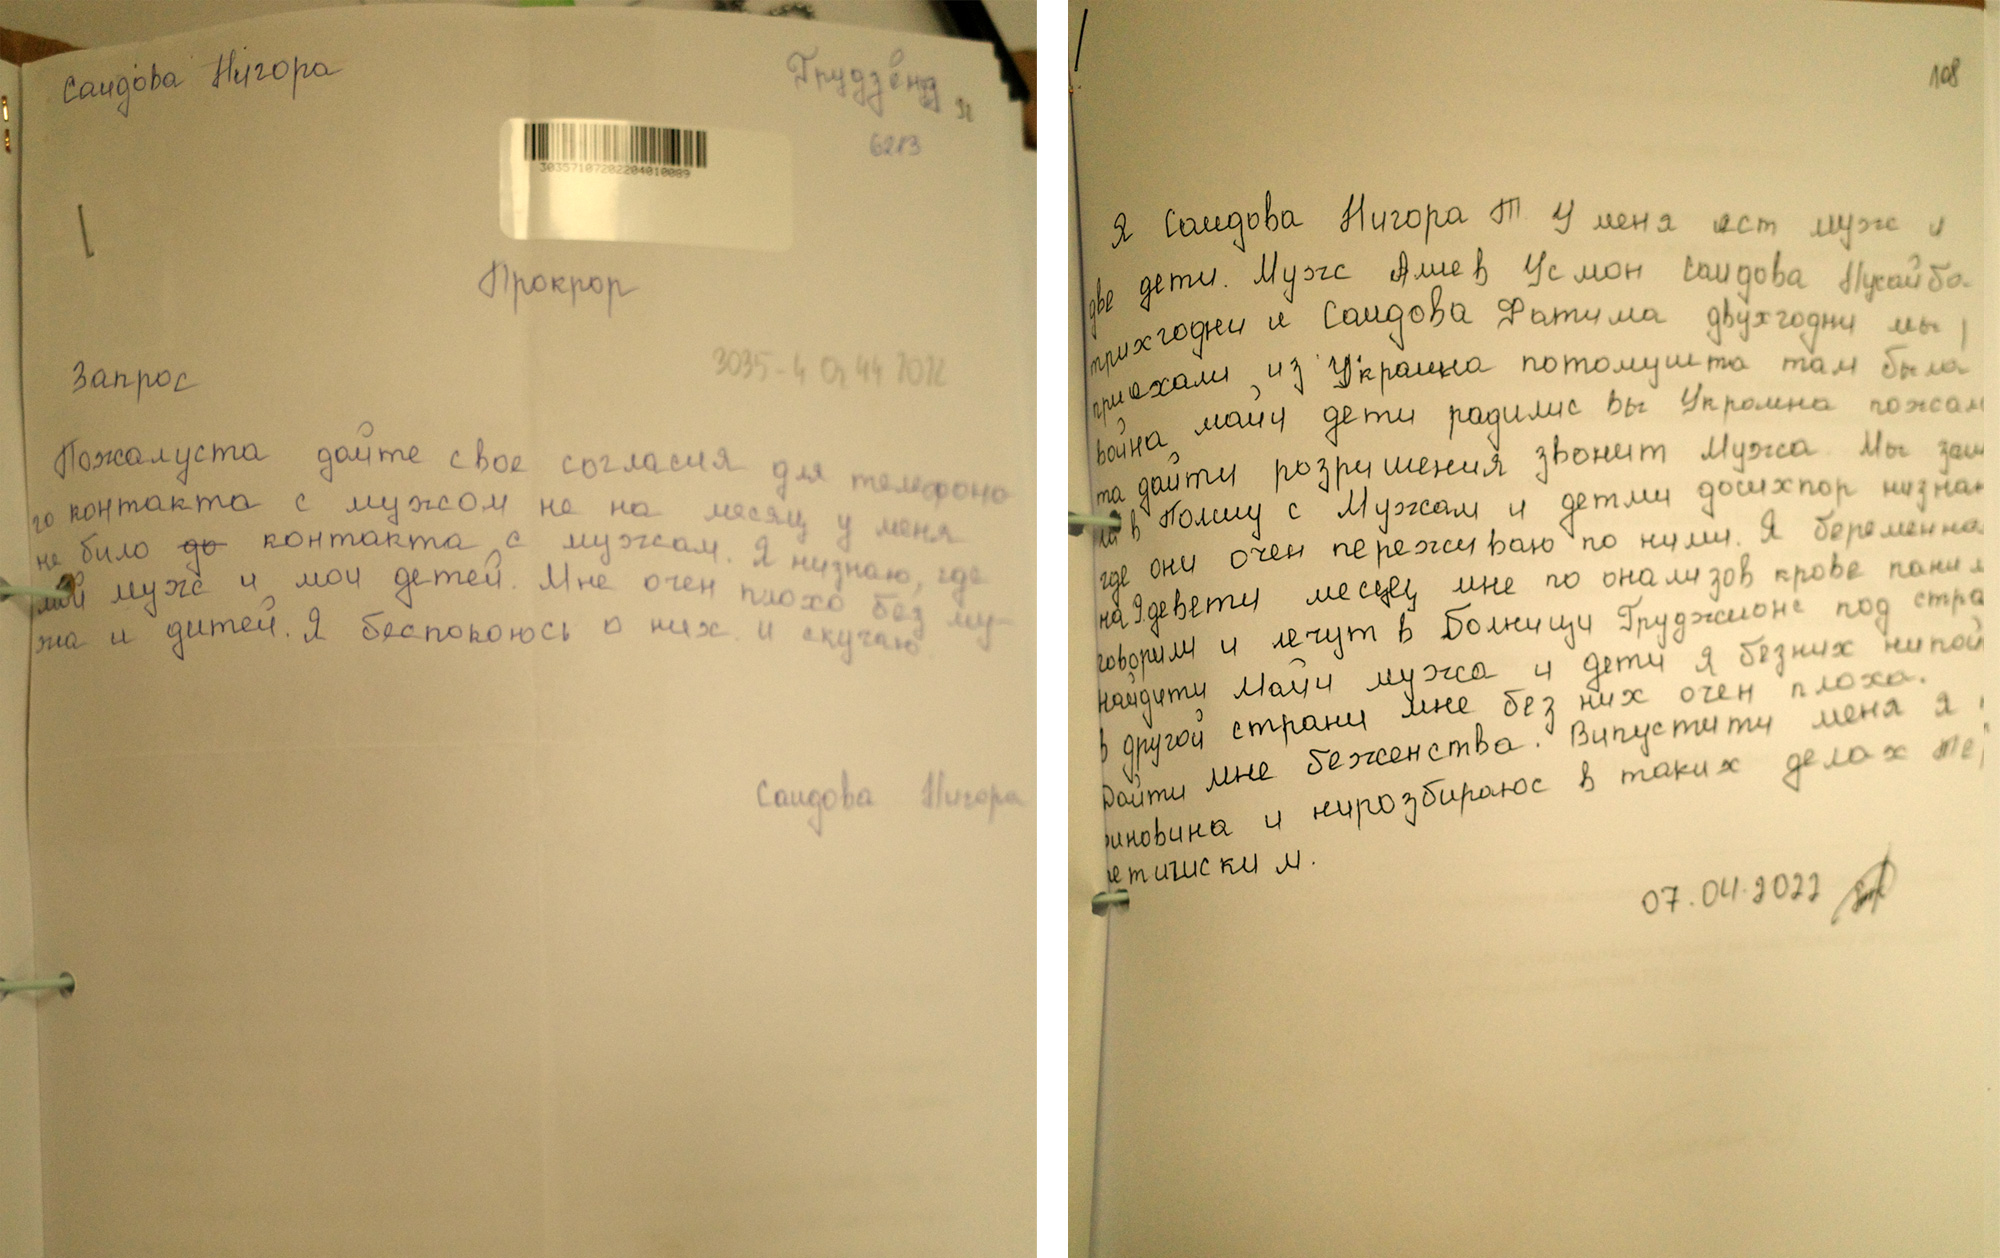 Саидова Нигора
Грудзёнд
6213
30357107202204010089
Прокрор
3035-4 Oz 44 2022
Запрос
Пожалуста дайте свое согласия для телефоно
го контакта с мужом не на месяц у меня
не било до контакта с мужам. Я низнаю, где
мой муж и мои детей. Мне очен плохо без му-
жа и дитей. Я беспокоюсь о них и скучаю.
Саидова Нигора
108
Я Саидова Нигора Т. У меня ест муж и
две дети. Муж Алиев Усмон Саидова
трихгодни и Саидова Фатима двухгодни мы
приехали из Украина потомушта там была
война майи дети радилис вы Украина пожал
та дайти розришения звонит Мужа. Мы заш
ли в Полшу с Мужам и детми досихпор низна
где они очен переживаю по ними. Я беременна
на 9девети месец мне по онализов крове
говорили и лечут в Болници Груджионс под стра
найдити Майи мужа и дети я безних
в другой страни мне без них очен плоха.
Дайти мне беженства. Випустити меня я
виновина и нирозбираюс в таких делах
етичиским.
07.04.2022